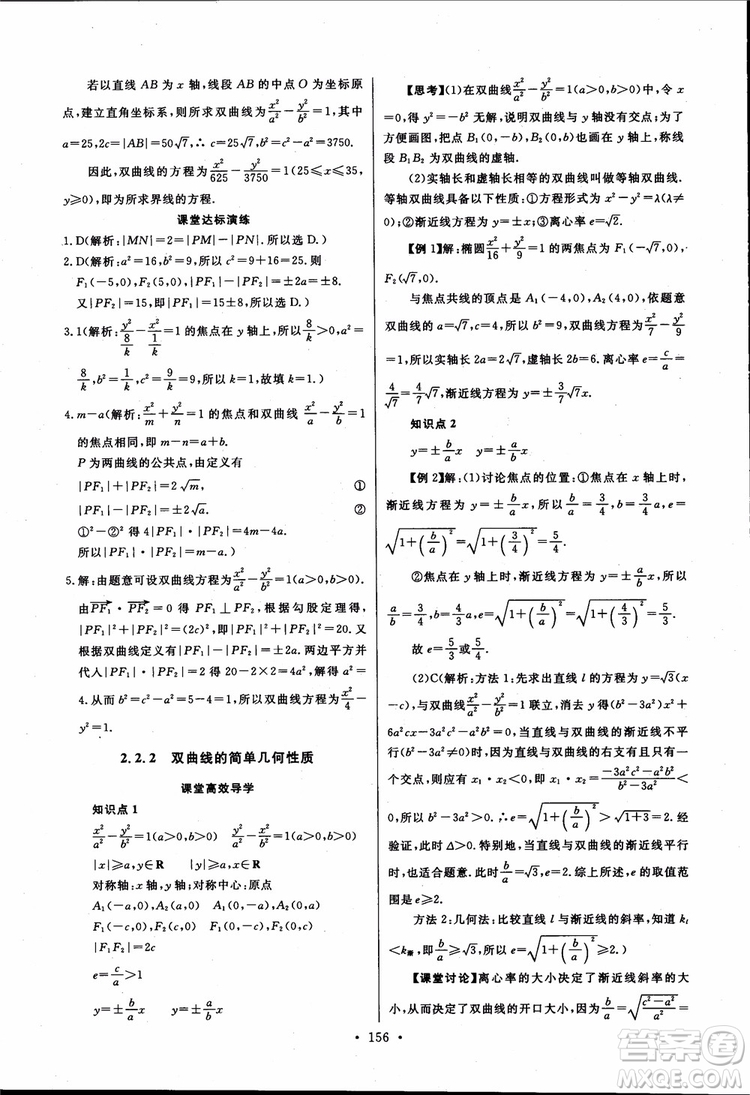 若以直线 AB 为 x 轴,线段 AB 的中点 O 为坐标原
点,建立直角坐标系,则所求双曲线为 x²/a² - y²/b² = 1,其中
a=25,2c=|AB|=50√7,∴c=25√7,b²=c²-a²=3750.
因此,双曲线的方程为 x²/625 - y²/3750 = 1(25≤x≤35,
y≥0),即为所求界线的方程.
课堂达标演练
1. D(解析:|MN|=2=|PM|-|PN|.所以选 D.)
2. D(解析:a²=16,b²=9,所以 c²=9+16=25.则
F₁(-5,0),F₂(5,0),|PF₁|-|PF₂|=±2a=±8.
又|PF₂|=15,即|PF₁|=15±8.所以选 D.)
3. 1(解析:y²/(8/k) - x²/(1/k) = 1 的焦点在 y 轴上,所以 8/k>0,a²=
8/k,b²=1/k,c²=9=8/k+1/k=9/k,所以 k=1,故填 k=1.)
4. m-a(解析:x²/m + y²/n = 1 的焦点和双曲线 x²/a - y²/b = 1
的焦点相同,即 m-n=a+b.
P 为两曲线的公共点,由定义有
|PF₁|+|PF₂|=2√m, ①
|PF₁|-|PF₂|=±2√a. ②
①²-②²得 4|PF₁|·|PF₂|=4m-4a.
所以|PF₁|·|PF₂|=m-a.)
5. 解:由题意可设双曲线方程为 x²/a² - y²/b² = 1(a>0,b>0).
由PF₁→·PF₂→=0 得 PF₁⊥PF₂,根据勾股定理得,
|PF₁|²+|PF₂|²=(2c)²,即|PF₁|²+|PF₂|²=20.
又根据双曲线定义有|PF₁|-|PF₂|=±2a.两边平方并
代入|PF₁|·|PF₂|=2 得 20-2×2=4a²,解得 a²=
4.从而 b²=c²-a²=5-4=1,所以双曲线方程为 x²/4 -
y²=1.
2.2.2 双曲线的简单几何性质
课堂高效导学
知识点 1
x²/a² - y²/b² = 1(a>0,b>0) y²/a² - x²/b² = 1(a>0,b>0)
|x|≥a,y∈R |y|≥a,x∈R
对称轴:x轴,y轴;对称中心:原点
A₁(-a,0),A₂(a,0) A₁(0,-a),A₂(0,a)
F₁(-c,0),F₂(c,0) F₁(0,-c),F₂(0,c)
|F₁F₂|=2c
e=c/a>1
y=±(b/a)x y=±(a/b)x
【思考】(1)在双曲线 x²/a² - y²/b² = 1(a>0,b>0)中,令 x
=0,得 y²=-b² 无解,说明双曲线与 y 轴没有交点;为了
方便画图,把点 B₁(0,-b),B₂(0,b)也画在 y 轴上,称线
段 B₁B₂ 为双曲线的虚轴.
(2)实轴长和虚轴长相等的双曲线叫做等轴双曲线.
等轴双曲线有以下性质:①方程形式为 x²-y²=λ(λ≠
0);②渐近线方程为 y=±x;③离心率 e=√2.
【例 1】解:椭圆 x²/16 + y²/9 = 1 的两焦点为 F₁(-√7,0),
F₂(√7,0).
与焦点共线的顶点是 A₁(-4,0),A₂(4,0),依题意
双曲线的 a=√7,c=4,所以 b²=9,双曲线方程为 x²/7 - y²/9 =
1.所以,实轴长 2a=2√7,虚轴长 2b=6.离心率 e=c/a=
4/√7=(4/7)√7,渐近线方程为 y=±(b/a)x=±(3/7)√7x.
知识点 2
y=±(b/a)x y=±(a/b)x
【例 2】解:(1)讨论焦点的位置:①焦点在 x 轴上时,
渐近线方程为 y=±(b/a)x=±(3/4)x,所以 b/a=3/4,所以 e=
√(1+(b/a)²)=√(1+(3/4)²)=5/4.
②焦点在 y 轴上时,渐近线方程为 y=±(a/b)x,所以
a/b=3/4,所以 b/a=4/3,所以 e=√(1+(b/a)²)=√(1+(4/3)²)=5/3.
故 e=5/3 或 5/4.
(2)C(解析:方法 1:先求出直线 l 的方程为 y=√3(x
-c),与双曲线 x²/a² - y²/b² = 1 联立,消去 y 得(b²-3a²)x²+
6a²cx-3a²c²-a²b²=0.当直线与双曲线的渐近线不平
行时,b²-3a²≠0,因为直线与双曲线的右支有且只有一
个交点,所以方程有一正根一负根,所以 (-3a²c²-a²b²)/(b²-3a²)<
0,所以 b²-3a²>0.∴e=√(1+(b/a)²)>√(1+3)=2.经
验证,此时 Δ>0.特别地,当直线与双曲线的渐近线平行
时,也适合题意.此时 b/a=√3,e=2,所以,e 的取值范
围为 e≥2.
方法 2:几何法:比较直线 l 与渐近线的斜率,知道 kₗ
<k渐,即 b/a≥√3,所以 e=√(1+(b/a)²)≥2.)
【课堂讨论】离心率的大小决定了渐近线斜率的大
小,从而决定了双曲线的开口大小,因为 b/a=√((c²-a²)/a²)=
• 156 •
答案圈
MXQE.COM